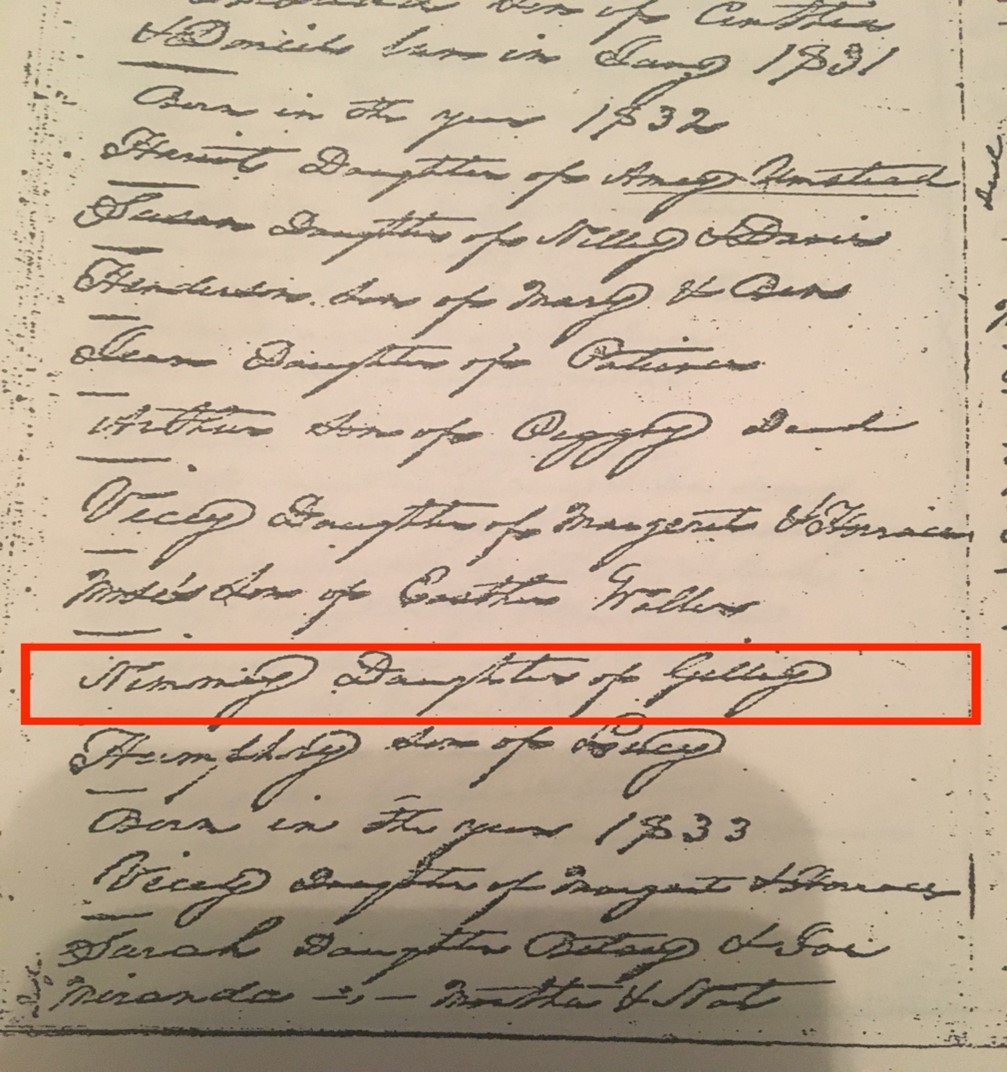 Son of Cinthia
& Daniel born in Jany 1831
Born in the year 1832
Harriot Daughter of Amey Umstead
Susan Daughter of Nilley & Davie
Henderson Son of Mary & Ben
Jean Daughter of Patience
Arthur Son of Peggy Dead
Vicey Daughter of Margaret & Horrace
Moses Son of Easther Waller
Nimmey Daughter of Gilley
Humphrey Son of Lucy
Born in the year 1833
Vicey Daughter of Margaret & Horrace
Sarah Daughter Betsey & Joe
Miranda -,- Martha & Nat